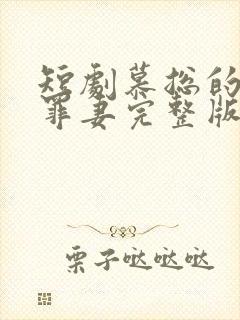 短劇慕总的
罪妻完整版
栗子哒哒哒